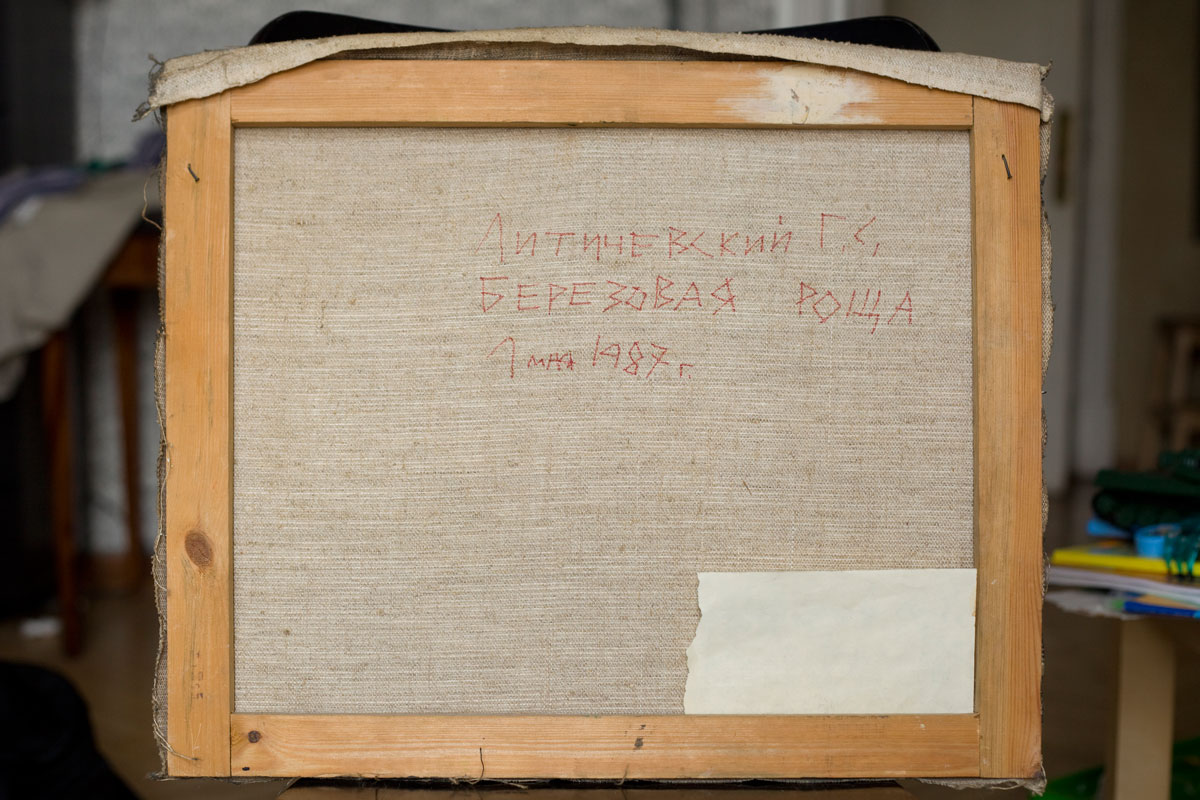 Литичевский Г.С.
БЕРЕЗОВАЯ РОЩА
1 мая 1987 г.